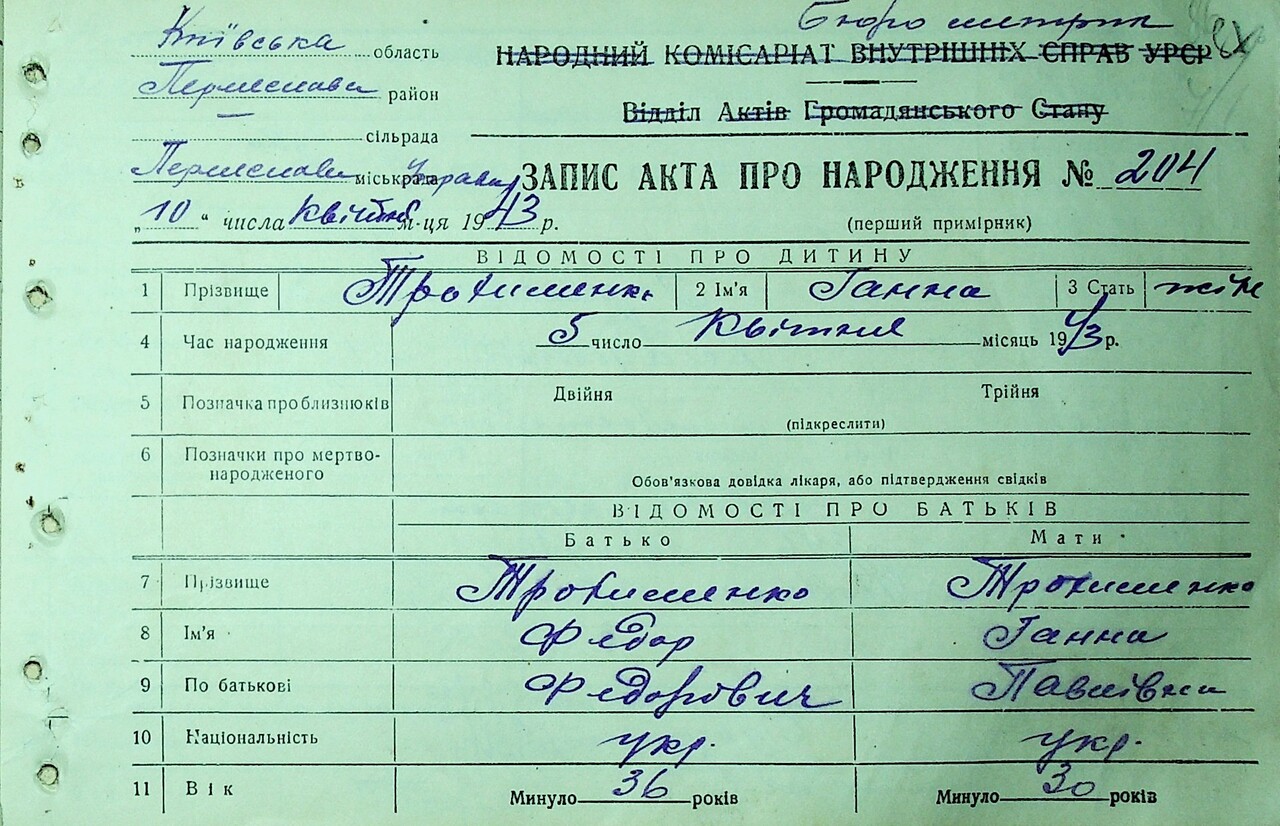 Бюро метрик
Київська область
НАРОДНИЙ КОМІСАРІАТ ВНУТРІШНІХ СПРАВ УРСР
район
Відділ Актів Громадянського Стану
сільрада
міськрада Управа
ЗАПИС АКТА ПРО НАРОДЖЕННЯ № 204
„10“ числа квітня м-ця 1943 р.
(перший примірник)
ВІДОМОСТІ ПРО ДИТИНУ
1 Прізвище Трохименко 2 Ім'я Ганна 3 Стать жін
4 Час народження 5 число квітня місяць 1943 р.
5 Позначка про близнюків Двійня Трійня
(підкреслити)
6 Позначки про мертво-
народженого
Обов'язкова довідка лікаря, або підтвердження свідків
ВІДОМОСТІ ПРО БАТЬКІВ
Батько Мати
7 Прізвище Трохименко Трохименко
8 Ім'я Федор Ганна
9 По батькові Федорович Павлівна
10 Національність укр. укр.
11 Вік Минуло 36 років Минуло 30 років